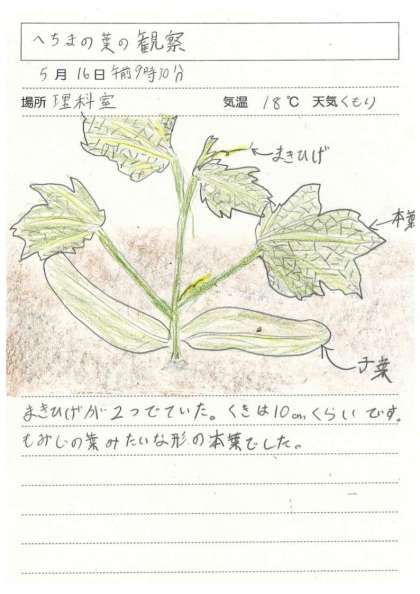 へちまの葉の観察
5月16日午前9時30分
場所 理科室 気温 18℃ 天気くもり
まきひげ
本葉
子葉
まきひげが2つでていた。くきは10cmくらいです。
もみじの葉みたいな形の本葉でした。